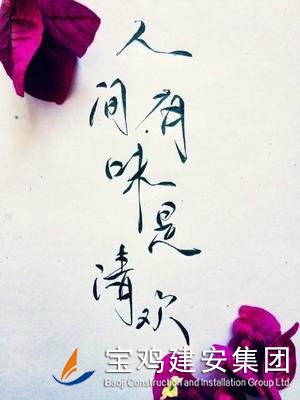 人间有味是清欢
宝鸡建安集团
Baoji Construction and Installation Group Ltd.